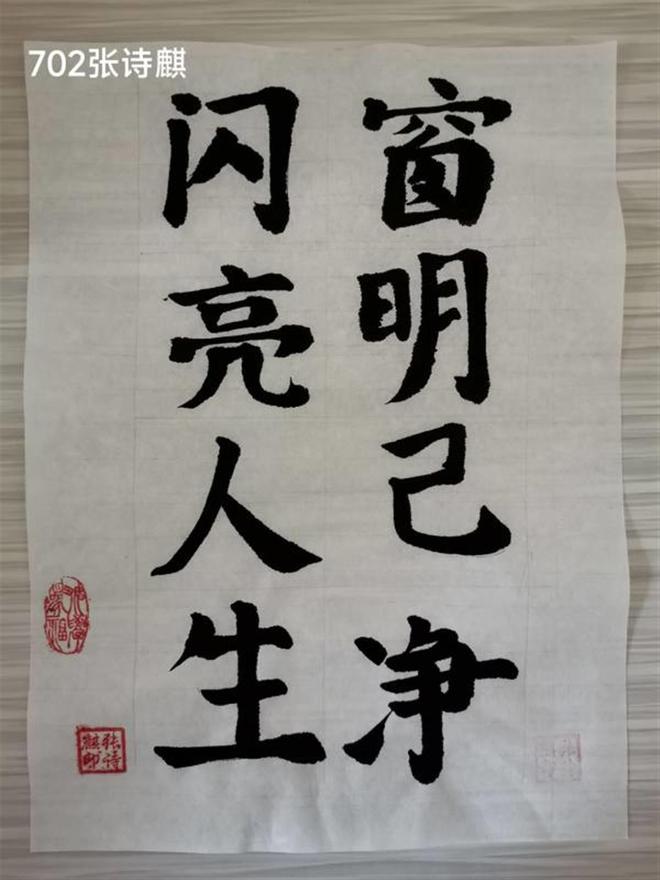 702张诗麒
窗明己净
闪亮人生
张诗
麒印